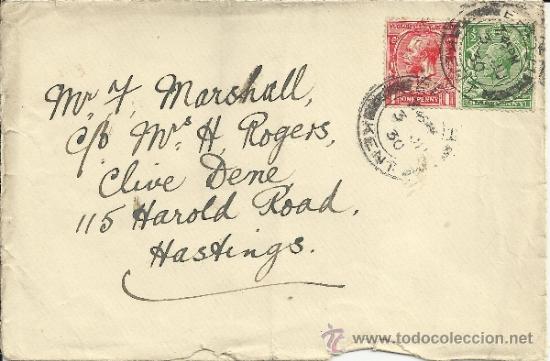 Mr F. Marshall,
c/o Mrs H. Rogers,
Clive Dene
115 Harold Road,
Hastings.
ONE PENNY
KENT
30
www.todocoleccion.net